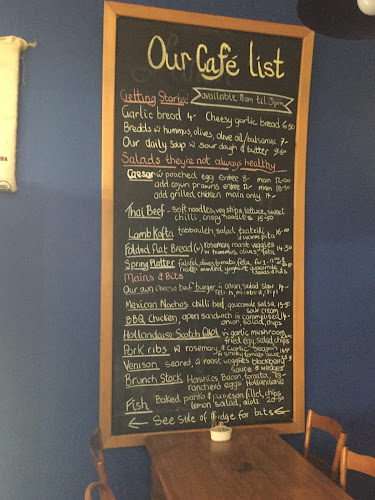 Our Café list
Getting Started available 11am til 3pm
Garlic bread 4- Cheesy garlic bread 6.50
Breads w hummus, olives, olive oil/balsamic 7-
Our daily Soup w Sour dough & butter 9.50
Salads they're not always healthy
Caesar w poached egg Entrée 8- main 12.00
add cajun prawns entrée 12- main 18.50
add grilled chicken main only 17-
Thai Beef - Soft noodles, veg strips, lettuce, sweet
chilli, crispy noodles 15.50
Lamb Kofta tabbouleh, salad, tzatziki
& warm pita
Folded Flat Bread (v) Rosemary roast veggies
w hummus, olives, feta 14.50
Spring Platter falafel, olives, tomato, feta
minted yoghurt
Mains & Bits
Our own cheese beef burger w onion, salad, slaw 14-
Mexican Nachos chilli beef, guacamole, salsa 15.50
sour cream
BBQ Chicken, open sandwich w caramelised 14-
onion, salad, chips
Hollandaise Scotch fillet w garlic mushroom
fried egg, salad, chips
Pork ribs w rosemary & Garlic
w smokey tomato sauce
Venison seared, w roast veggies blackberry
sauce & wedges
Brunch Stack Hashies, Bacon, tomato,
ranchero eggs Hollandaise
Fish Baked panko & parmesan fillet, chips
lemon salad, aioli 20.50
See side of fridge for bits